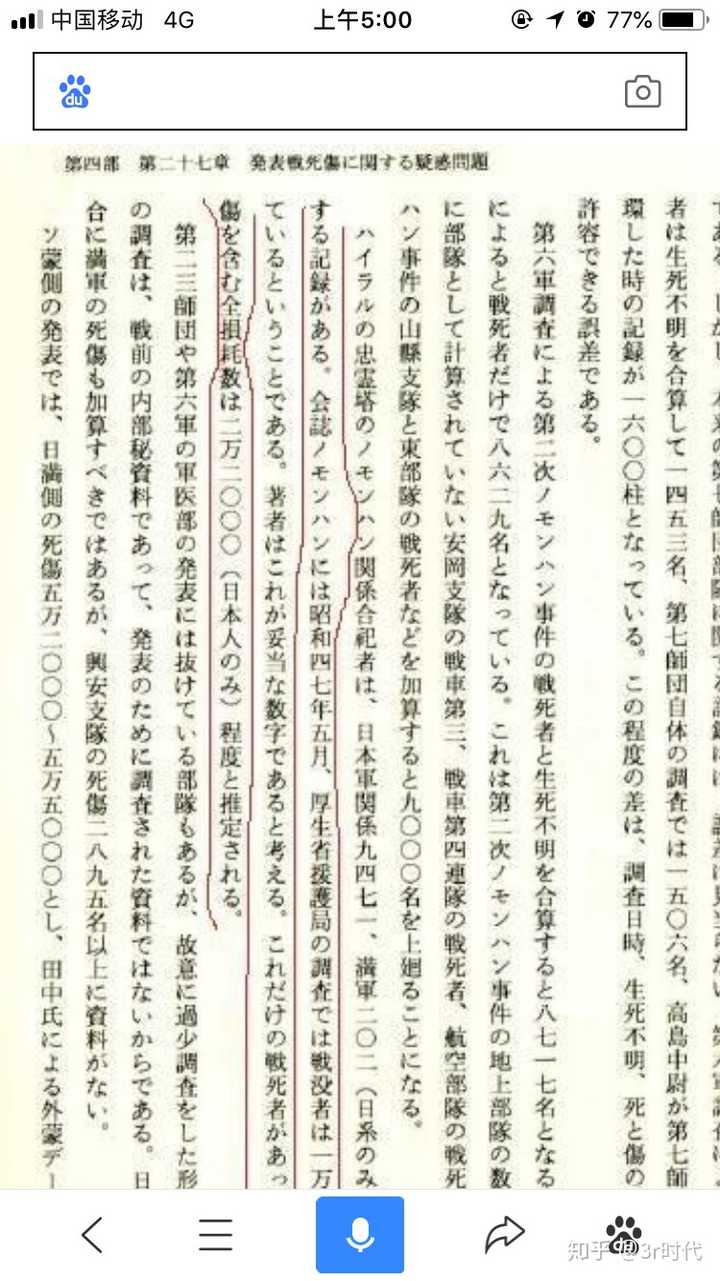 中国移动 4G 上午5:00 77%
du
第四部 第二十七章 発表戦死傷に関する疑惑問題
者は生死不明を合算して一四五三名、第七師団自体の調査では一五〇六名、高島中尉が第七師
環した時の記録が一六〇〇柱となっている。この程度の差は、調査日時、生死不明、死と傷の
許容できる誤差である。
第六軍調査による第二次ノモンハン事件の戦死者と生死不明を合算すると八七一七名となる
によると戦死者だけで八六二九名となっている。これは第二次ノモンハン事件の地上部隊の数
に部隊として計算されていない安岡支隊の戦車第三、戦車第四連隊の戦死者、航空部隊の戦死
ハン事件の山縣支隊と東部隊の戦死者などを加算すると九〇〇〇名を上廻ることになる。
ハイラルの忠霊塔のノモンハン関係合祀者は、日本軍関係九四七一、満軍二〇二（日系のみ
する記録がある。会誌ノモンハンには昭和四七年五月、厚生省援護局の調査では戦没者は一万
ているということである。著者はこれが妥当な数字であると考える。これだけの戦死者があっ
傷を含む全損耗数は二万二〇〇〇（日本人のみ）程度と推定される。
第二三師団や第六軍の軍医部の発表には抜けている部隊もあるが、故意に過少調査をした形
の調査は、戦前の内部秘資料であって、発表のために調査された資料ではないからである。日
合に満軍の死傷も加算すべきではあるが、興安支隊の死傷二八九五名以上に資料がない。
ソ蒙側の発表では、日満側の死傷五万二〇〇〇～五万五〇〇〇とし、田中氏による外蒙デー
知乎 @3r时代